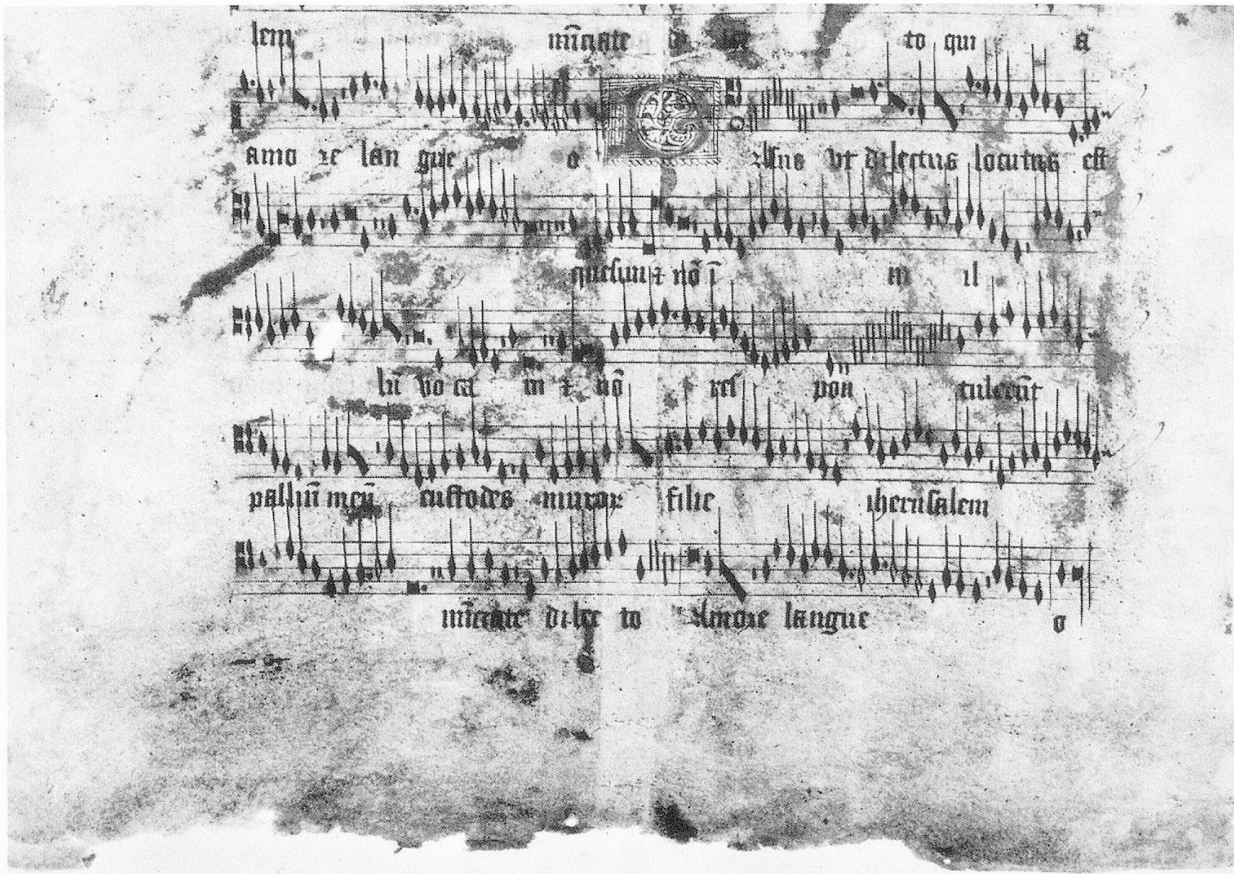 lem nūciate to qui a
amo re lan gue o Alius vt dilectus locutus est
quesiui ⁊ nō ī ni il
lū vo ca ui ⁊ nō res pon tulerūt
palliū meū custodes muror filie iherusalem
nūciate dilec to Amore langue o